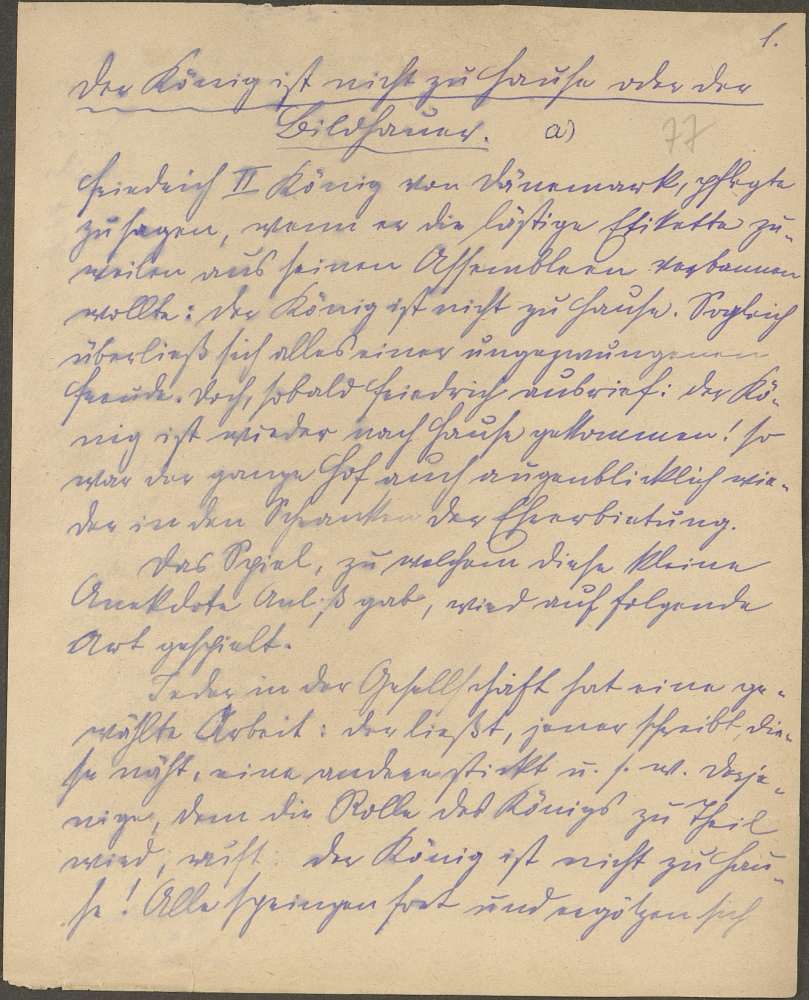 1.
Der König ist nicht zu Hause oder der
Bildhauer. a) 77
Friedrich II König von Dänemark, pflegte
zu sagen, wenn er die lästige Etikette zu-
weilen aus seinen Assembleen verbannen
wollte: der König ist nicht zu Hause. Sogleich
überließ sich alles einer ungezwungenen
Freude. Doch, sobald Friedrich ausrief: der Kö-
nig ist wieder nach Hause gekommen! so
war der ganze Hof auch augenblicklich wie-
der in den Schranken der Ehrerbietung.
Das Spiel, zu welchem diese kleine
Anekdote Anlaß gab, wird auf folgende
Art gespielt.
Jeder in der Gesellschaft hat eine ge-
wählte Arbeit: der ließt, jener schreibt, die-
se näht, eine andere stickt u. s. w. Derje-
nige, dem die Rolle des Königs zu Theil
wird, ruft: der König ist nicht zu Hau-
se! Alle springen fort und ergötzen sich